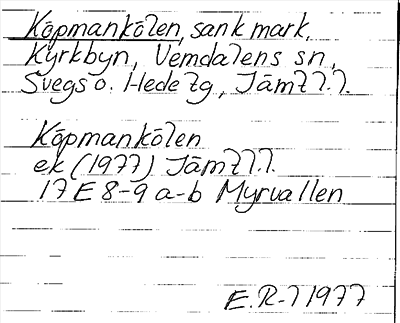 Köpmankölen, sank mark,
Kyrkbyn, Vemdalens sn,
Svegs o. Hede tg, Jämtl.l.
Köpmankölen
ek (1977) Jämtl.l.
17 E 8-9 a-b Myrvallen
E.R-l 1977